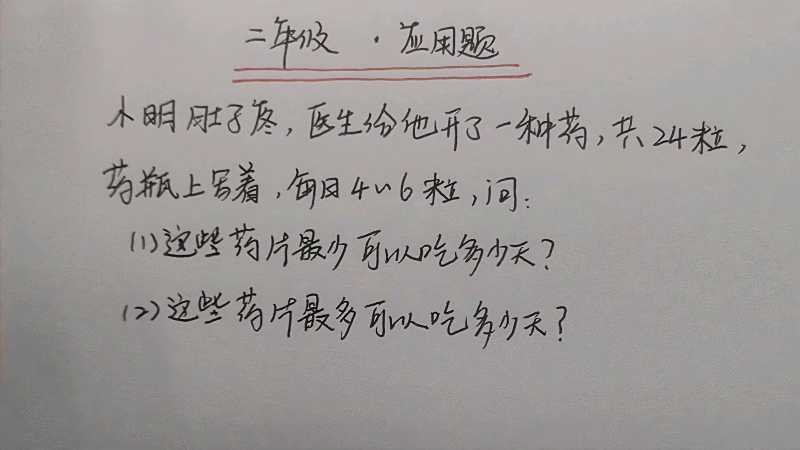 二年级 · 应用题
小明肚子疼，医生给他开了一种药，共24粒，
药瓶上写着，每日4~6粒，问：
(1)这些药片最少可以吃多少天？
(2)这些药片最多可以吃多少天？